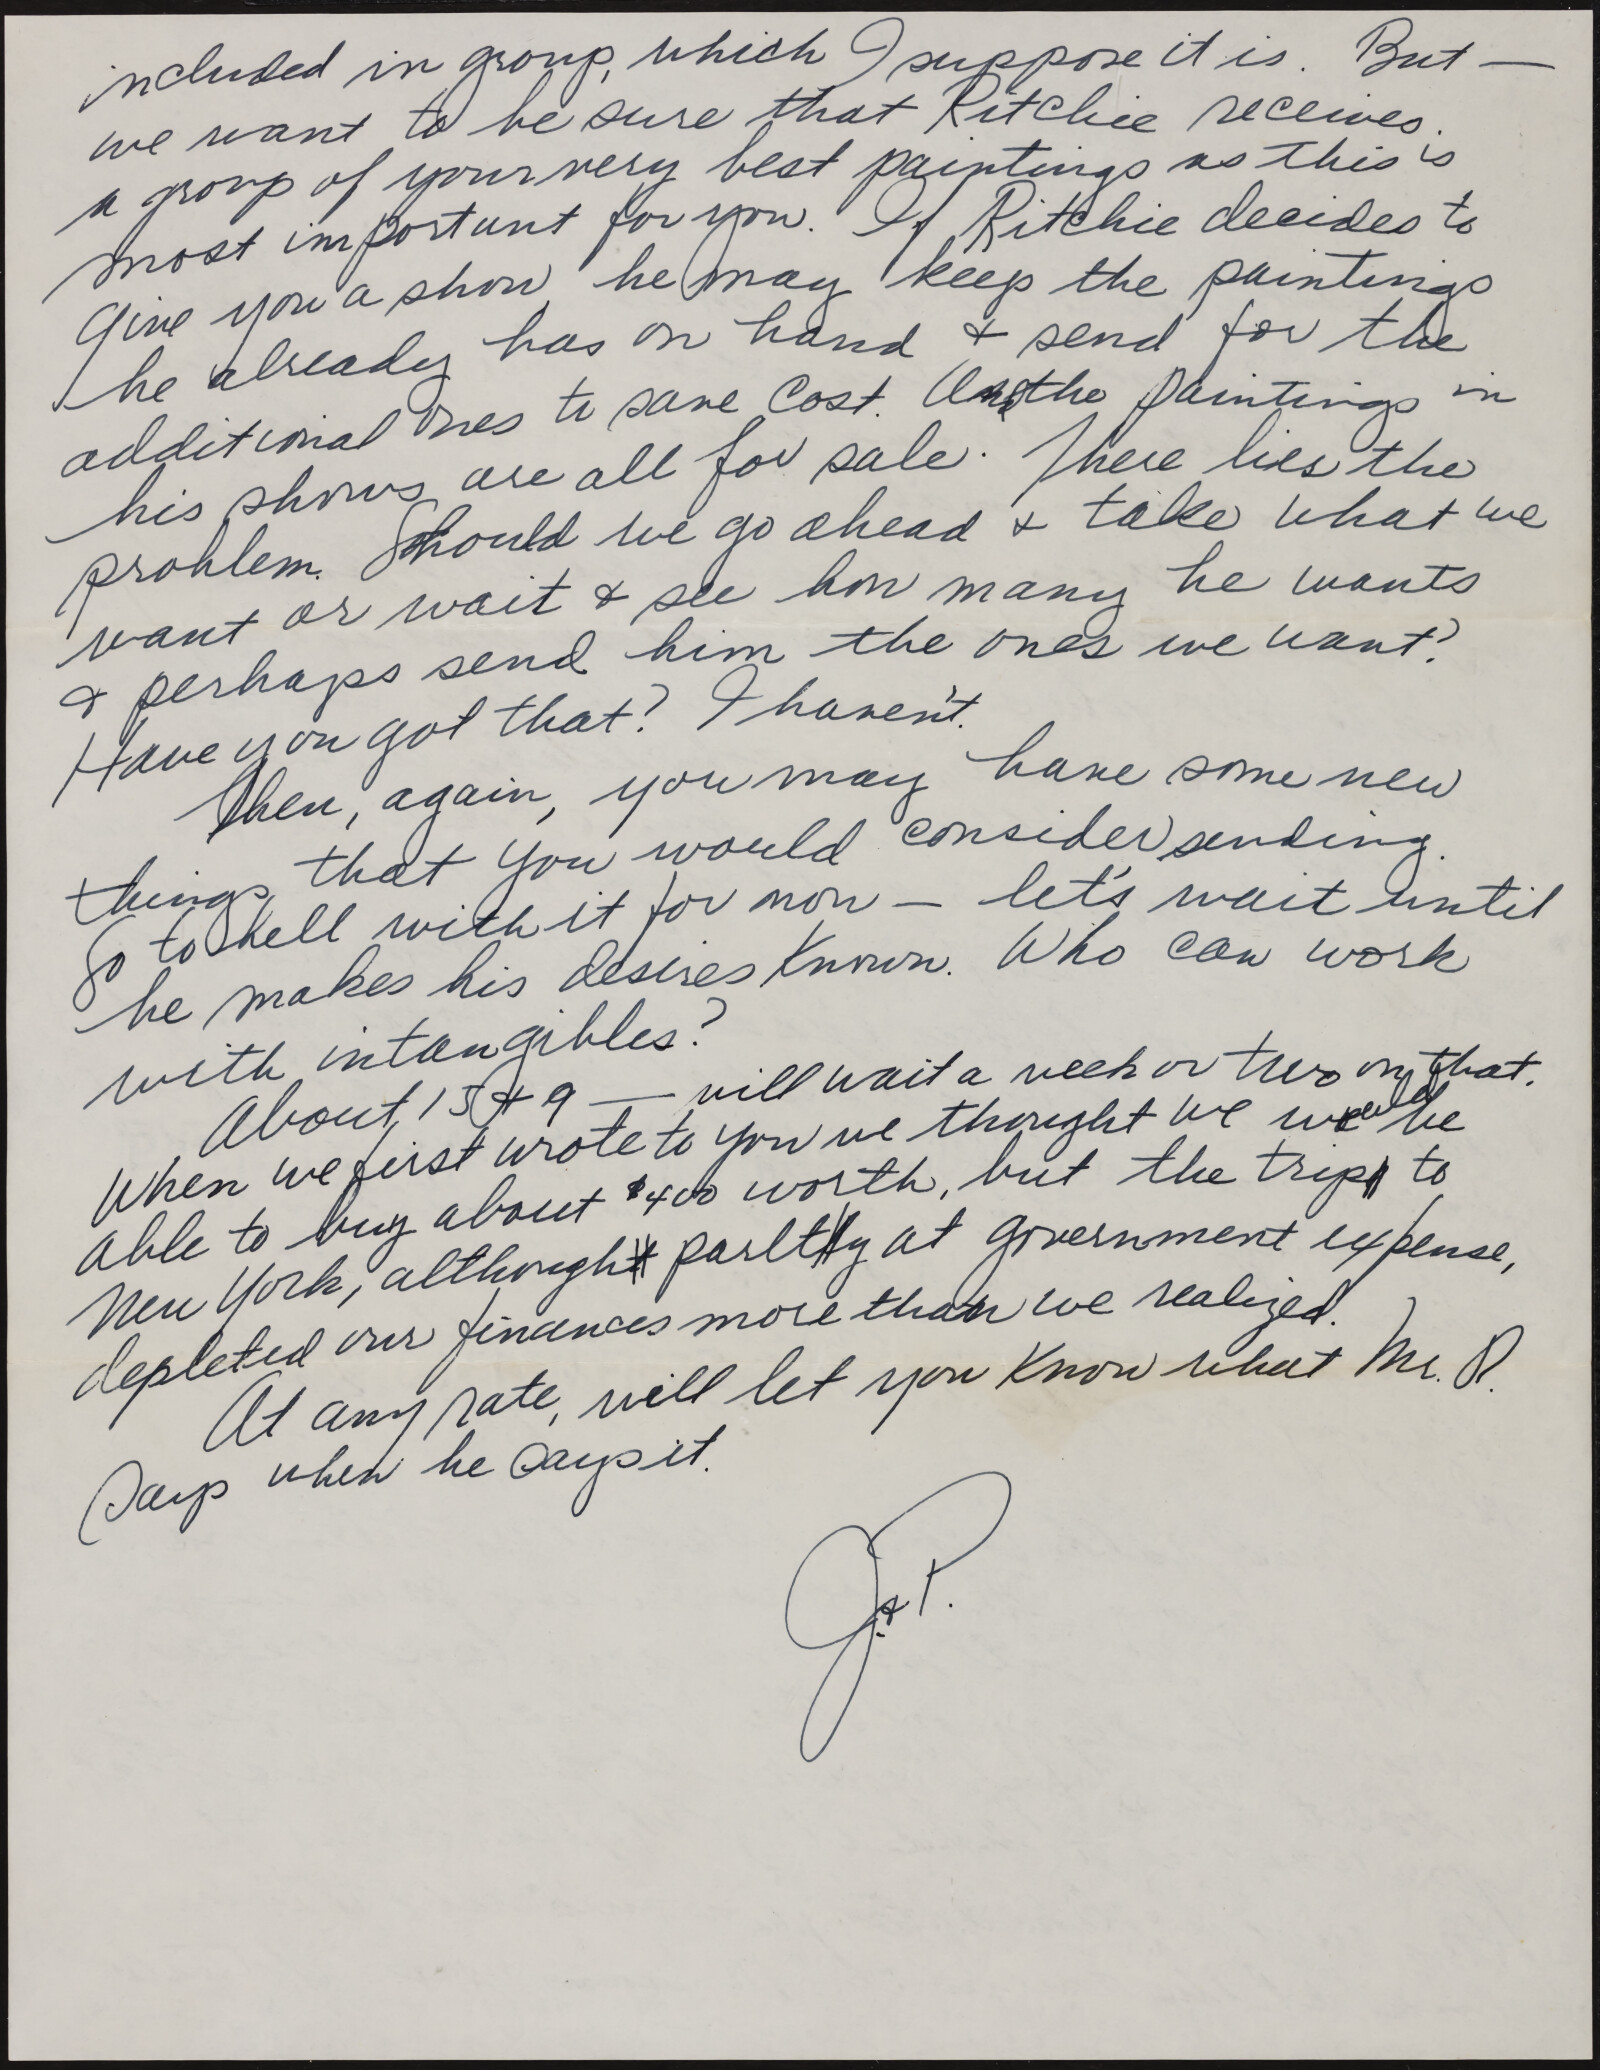 included in group, which I suppose it is. But —
we want to be sure that Ritchie receives
a group of your very best paintings as this is
most important for you. If Ritchie decides to
give you a show he may keep the paintings
he already has on hand & send for the
additional ones to save cost. And the paintings in
his shows are all for sale. There lies the
problem. Should we go ahead & take what we
want or wait & see how many he wants
& perhaps send him the ones we want?
Have you got that? I haven't.
Then, again, you may have some new
things that you would consider sending.
Go to hell with it for now — let's wait until
he makes his desires known. Who can work
with intangibles?
About 15 & 9 — will wait a week or two on that.
When we first wrote to you we thought we would be
able to buy about $400 worth, but the trip to
New York, although partly at government expense,
depleted our finances more than we realized.
At any rate, will let you know what Mr. R.
says when he says it.
J. & P.